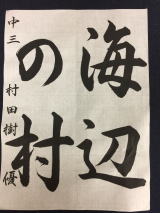 海辺
の村
中三 村田樹優